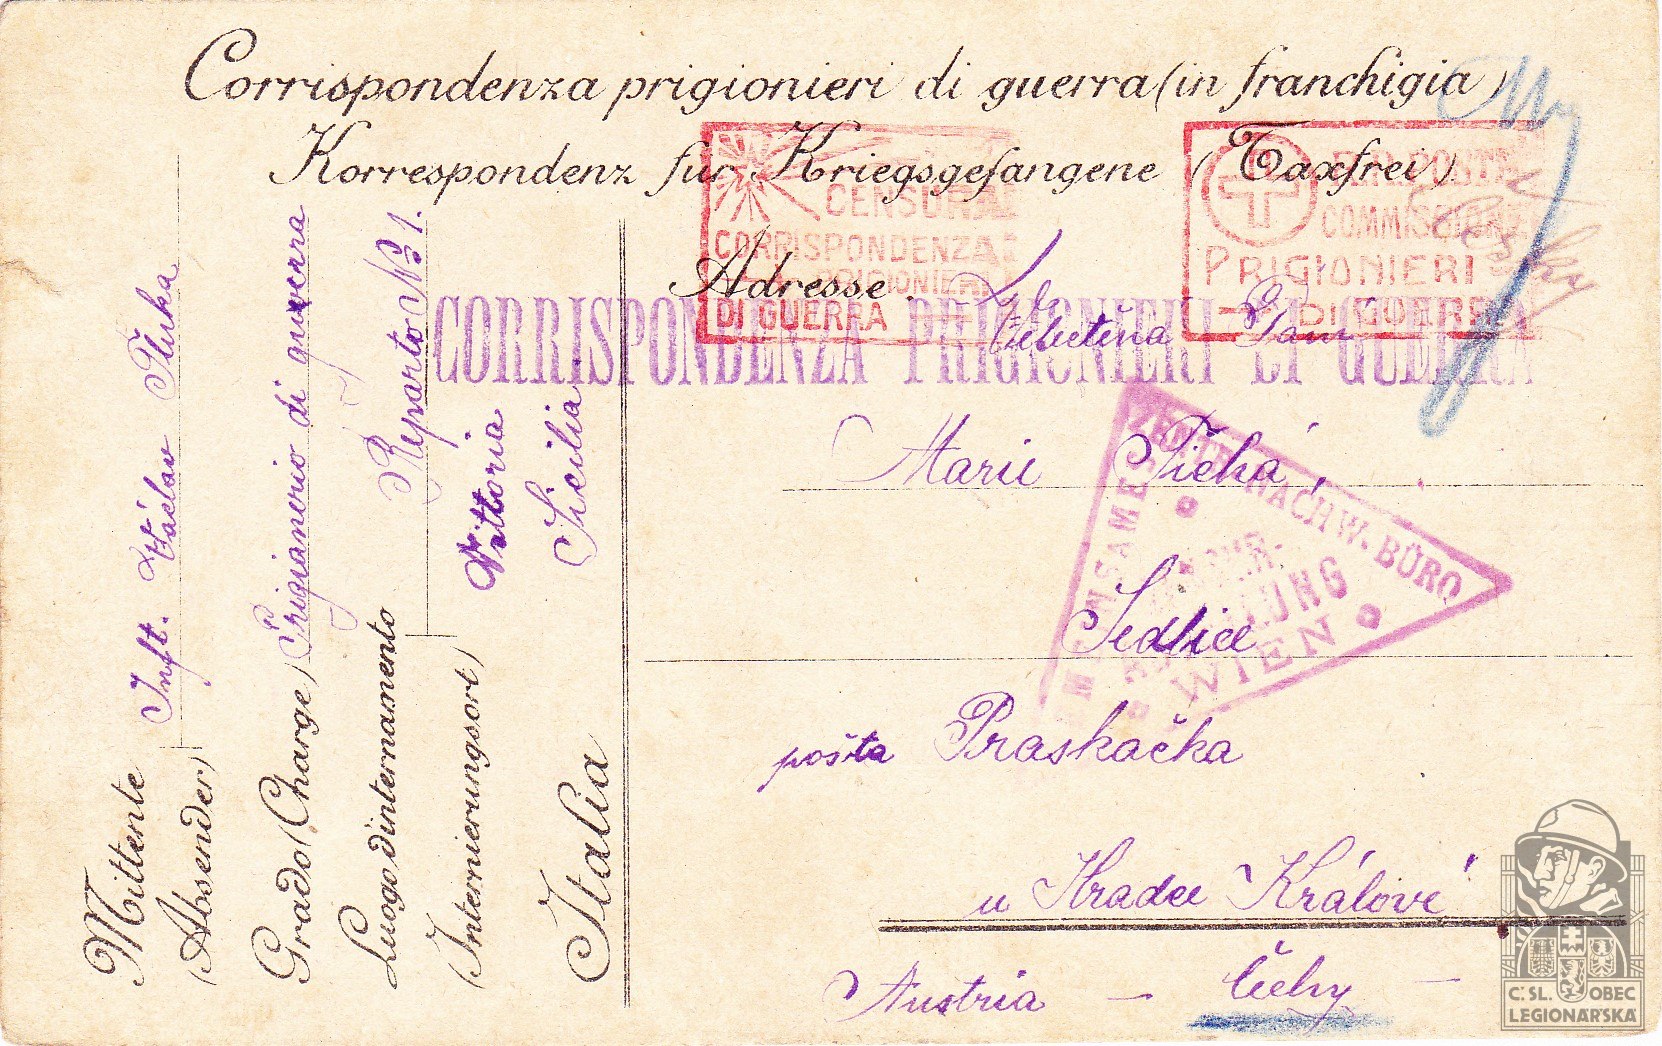 Corrispondenza prigionieri di guerra (in franchigia)
Korrespondenz für Kriegsgefangene (Taxfrei)
CENSURA
CORRISPONDENZA
PRIGIONIERI
DI GUERRA
COMMISSIONE
PRIGIONIERI
DI GUERRA
CORRISPONDENZA PRIGIONIERI DI GUERRA
Adresse.
Paní
Marii Tichá,
Sedlice
pošta Praskačka
u Hradce Králové
Austria — Čechy —
ZENTR. NACHW. BÜRO
WIEN
Mittente Inft. Václav
(Absender)
Grado (Charge) Prigioniero di guerra
Luogo d'internamento Reparto No 1.
(Internierungsort) Vittoria
Italia Sicilia
Č. SL. OBEC
LEGIONÁRSKÁ